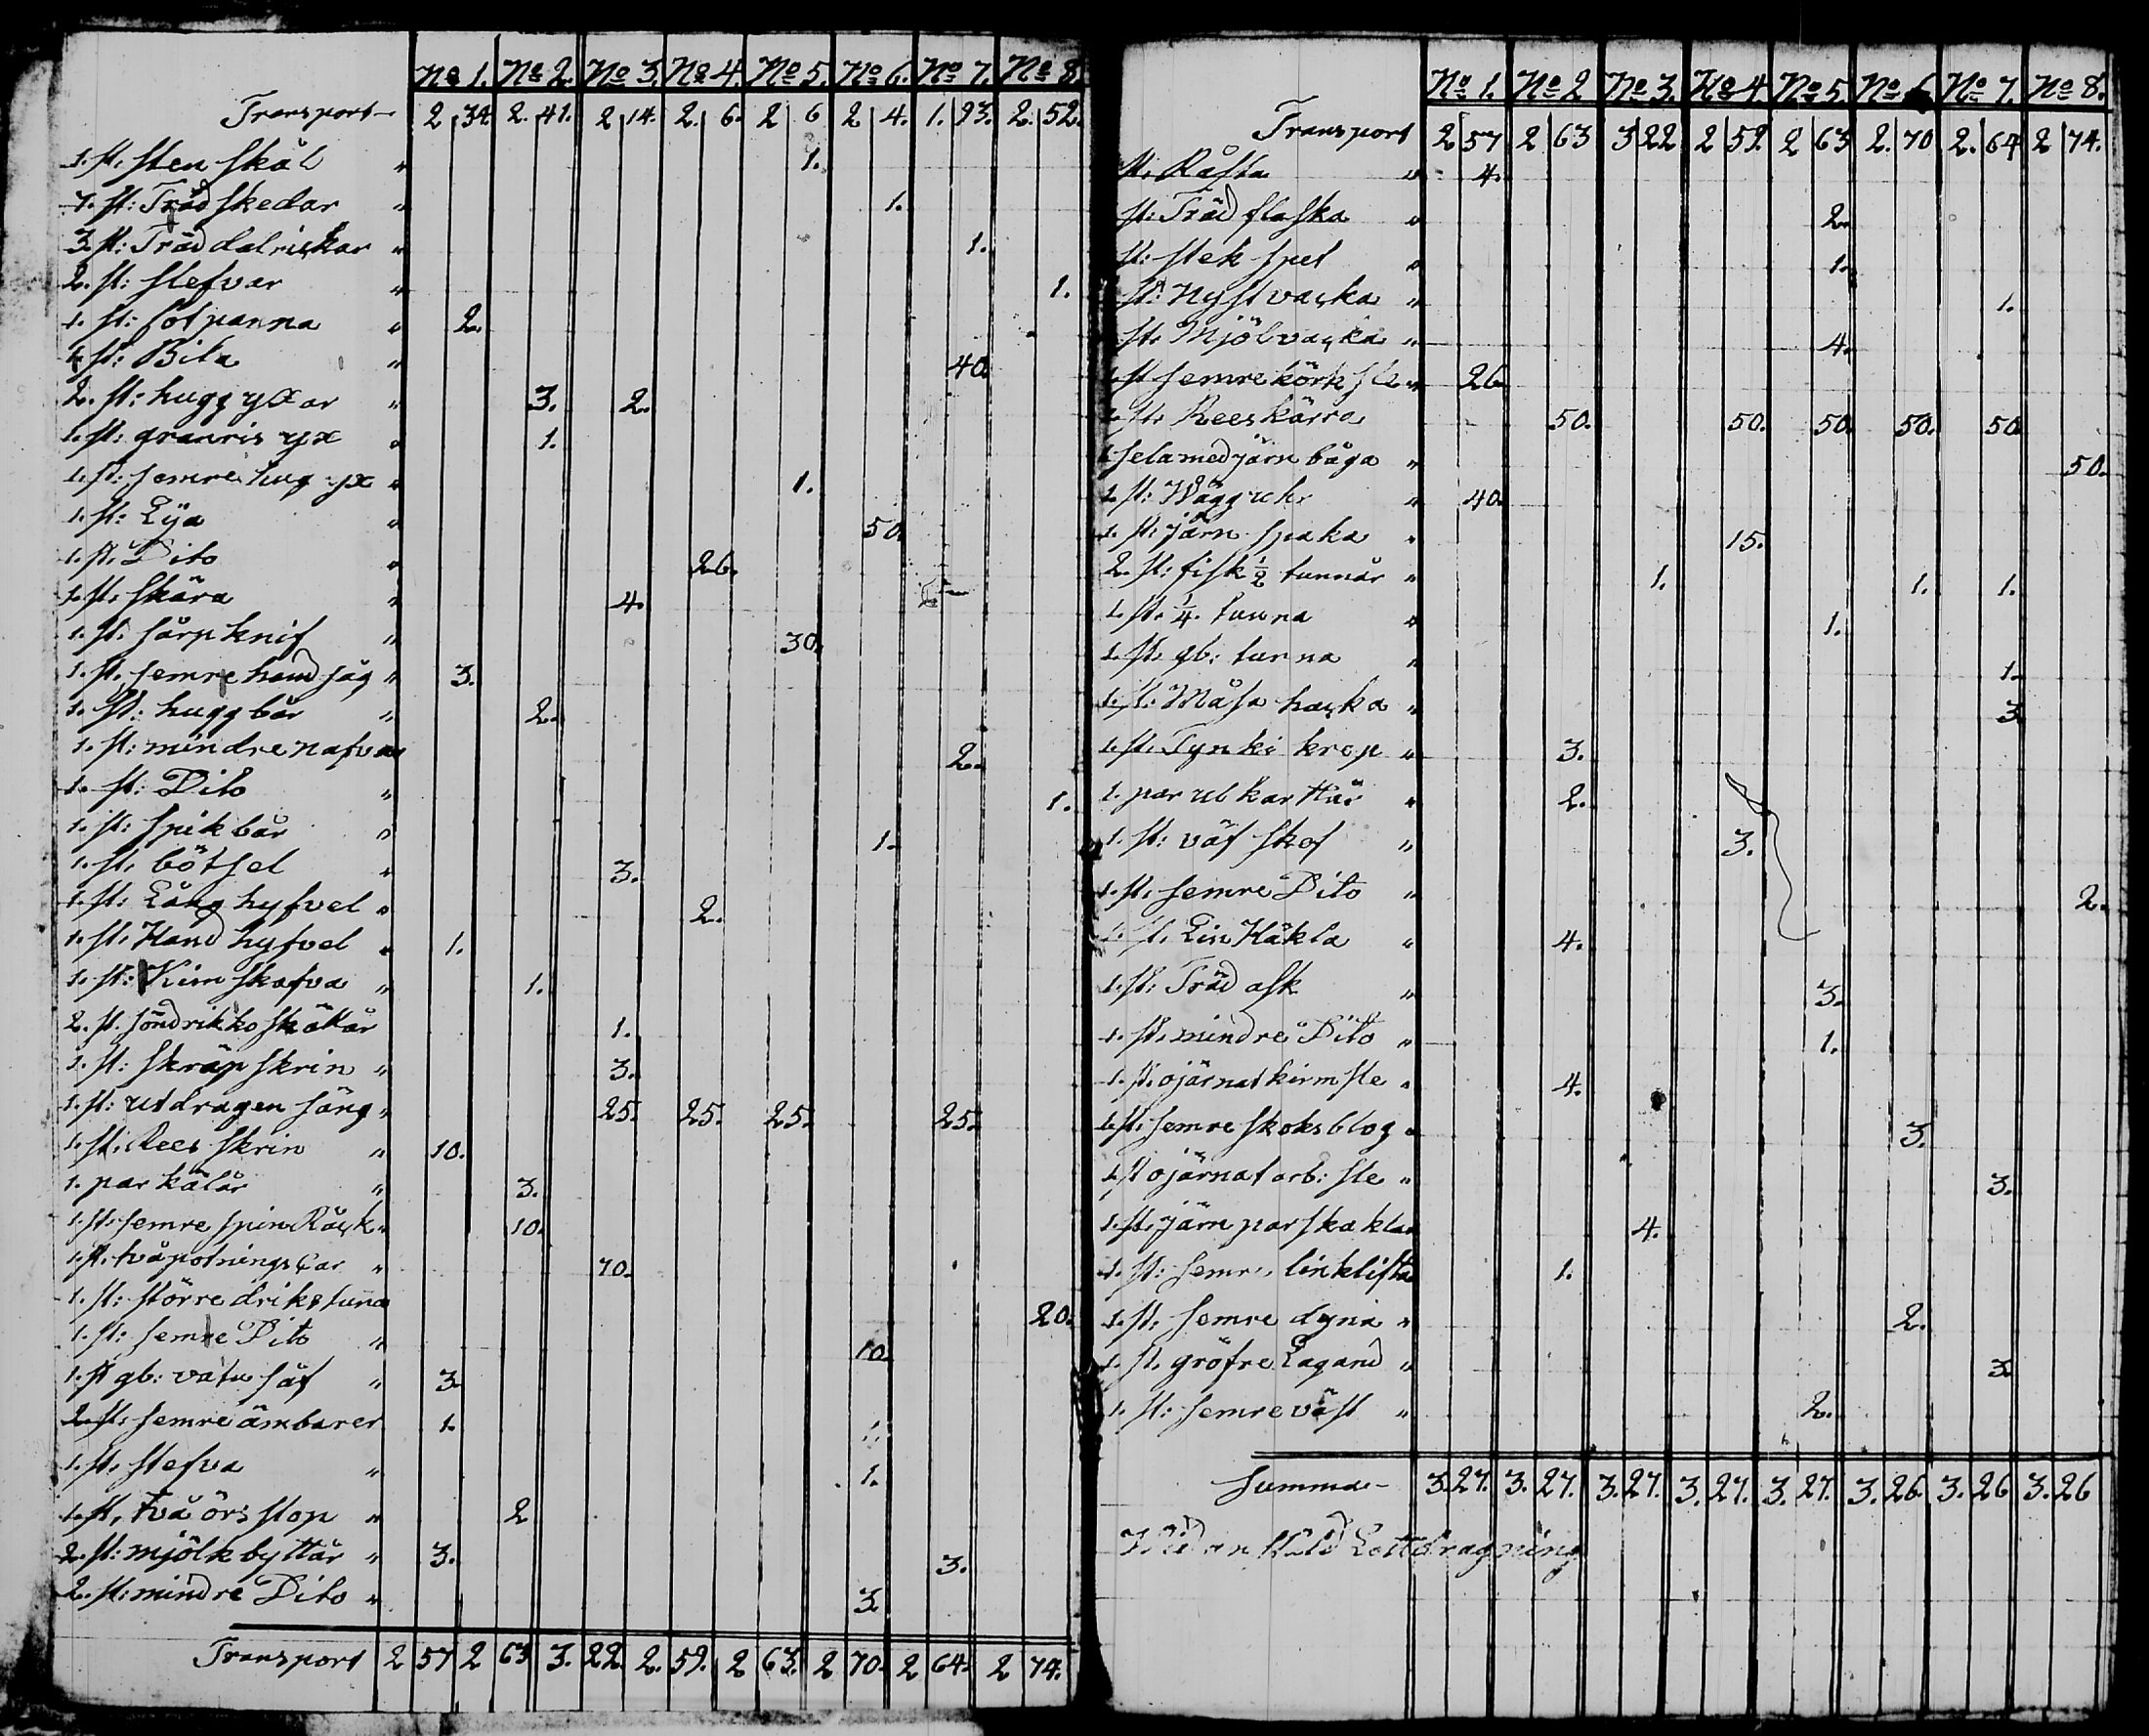 No 1. No 2. No 3. No 4. No 5. No 6. No 7. No 8.
Transport 2 34. 2. 41. 2 14. 2. 6. 2 6 2 4. 1. 93. 2. 52.
1. st. sten skål " 1.
7. st: Träd skedar " 1.
3. st: Träd dalrickar " 1.
2. st: slefvar " 1.
1. st: sot panna " 2.
1. st: Bila " 40.
2. st: hugg yxar " 3. 2.
1. st: granris yx " 1.
1. st: semre hug yx " 1.
1. st: Lya " 50.
1. st. Dito " 26.
1. st. skära " 4.
1. st. sörp knif " 30.
1. st. semre hand såg " 3.
1. st: hugg bår " 2.
1. st: mindre nafvar 2.
1. st: Dito " 1.
1. st: spik bår " 1.
1. st. bötsel " 3.
1. st. Lång hyfvel " 2.
1. st. Hand hyfvel " 1.
1. st: Kim skafva " 1.
2. st. söndrikko skäkår 1.
1. st: skräp skrin " 3.
1. st: utdragen säng " 25. 25. 25. 25.
1. st. Rees skrin " 10.
1. par kälår " 3.
1. st. semre spin Råck " 10.
1. st. två potnings car " 70.
1. st: större driks tunna 20.
1. st: semre Dito " 10.
1. st gb: vatu såf " 3.
2. st. semre ämbarer 1. 1.
1. st. slefva " 1.
1. st. två örs stop " 2
2. st: mjölk byttår " 3. 3.
2. st: mindre Dito " 3.
Transport 2 57 2 63 3. 22. 2. 59. 2 63. 2 70. 2 64. 2 74.
No 1. No 2 No 3. No 4. No 5. No 6 No 7. No 8.
Transport 2 57 2 63 3 22 2 59. 2 63 2. 70 2. 64 2 74.
st. Råsta " 4.
st: Träd flaska " 2.
st: stek spet " 1.
st: Nyst vacka " 1.
st. Mjöl vacka " 4.
1. st semre körk sle " 26.
1. st. Rees kärra 50. 50. 50. 50. 50
1 sela med järn båga " 50.
1. st: Vägg uhr " 40.
1. st: järn spaka " 15.
2. st: fisk ½ tunnår " 1. 1. 1.
1. st. ¼. tunna " 1.
1. st. gb: tunna " 1.
1. st. Måsa hacka " 3
1. st. Tynki krop " 3.
1. par ul karttår " 2.
1. st: väf skof " 3.
1. st. semre Dito " 2.
1. st. Lin Häkla " 4.
1. st: Träd ask " 3.
1. st. mindre Dito " 1.
1. st. ojärnat kirm sle " 4.
1. st. semre skoksblog " 3.
1. st ojärnat arb: sle " 3.
1. st. järn par skakla 4.
1. st: semre linklifta 1.
1. st. semre dyna " 2.
1. st. gröfre Lagand " 3.
1. st: semre väst " 2.
Summa 3. 27. 3. 27. 3. 27. 3. 27. 3. 27. 3. 26. 3. 26 3. 26
Lottdragning